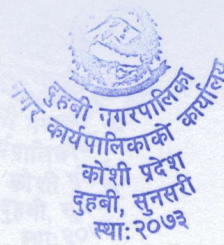 दुहबी नगरपालिका
नगर कार्यपालिकाको कार्यालय
कोशी प्रदेश
दुहबी, सुनसरी
स्था: २०७३